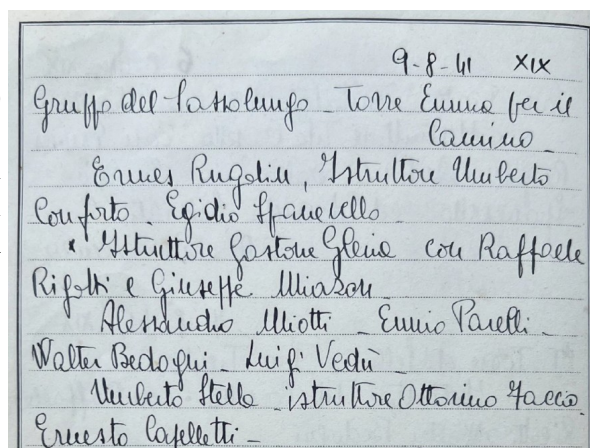 9-8-41 XIX
Gruppo del Sassolungo - Torre Emma per il
Camino -
Ermes Rugolin, Istruttore Umberto
Conforto Egidio Spanevello
Istruttore Gastone Gleria con Raffaele
Rigotti e Giuseppe Miazon -
Alessandro Miotti - Ennio Parelli -
Walter Bedogni - Luigi Vedù -
Umberto Stella - istruttore Ottorino Faccio
Ernesto Capelletti -